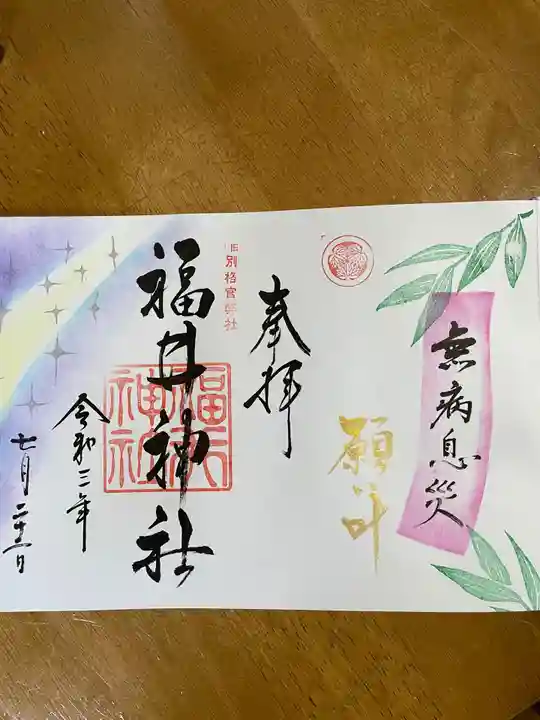 無病息災
願叶
奉拝
旧別格官幣社
福井神社
福井神社
令和三年
七月二十二日